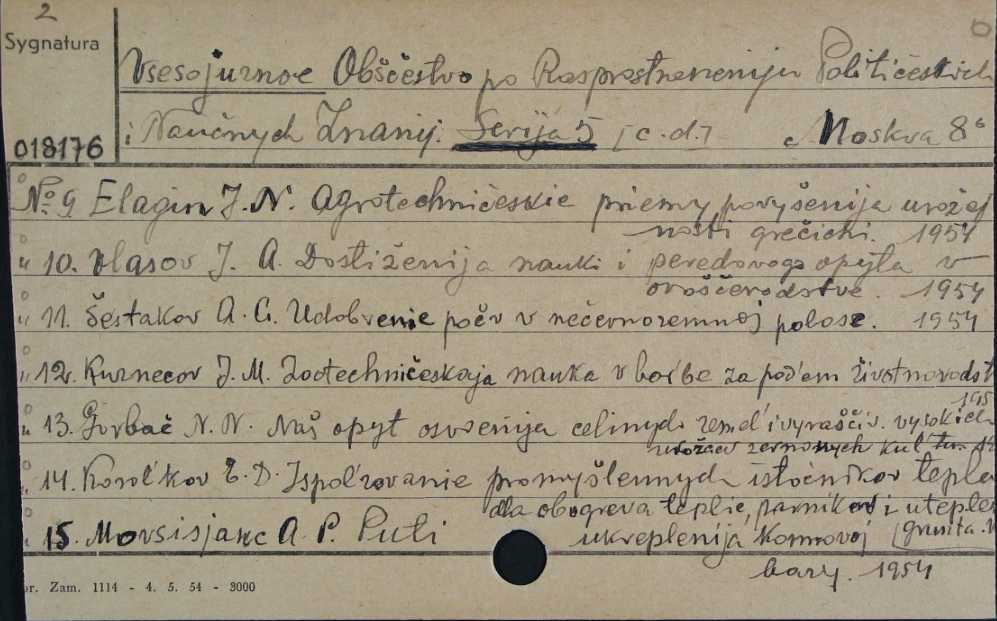 2
Sygnatura
Vsesojuznoe Obščestvo po Rasprostraneniju Političeskich
i Naučnych Znanij. Serija 5 [c.d.] Moskva 8°
018176
№ 9 Elagin J. N. Agrotechničeskie priemy povyšenija urožaj
nosti grečichi. 1954
" 10. Vlasov J. A. Dostiženija nauki i peredovogo opyta v
ovoščevodstve. 1954
" 11. Šestakov A. G. Udobrenie počv v nečernozemnoj polose. 1954
" 12. Kuznecov J. M. Zootechničeskaja nauka v bor'be za pod'em životnovodst
195
" 13. Gorbač N. N. Naš opyt osvoenija celinych zemel' i vyraščiv. vysokich
urožaev zernovych kul'tur.
" 14. Korol'kov E. D. Ispol'zovanie promyšlennych istočnikov tepla
dla obogreva teplic, parnikov i uteplen
" 15. Movsisjanc A. P. Puti ukreplenija kormovoj [grunta.
bazy. 1954
or. Zam. 1114 - 4. 5. 54 - 3000